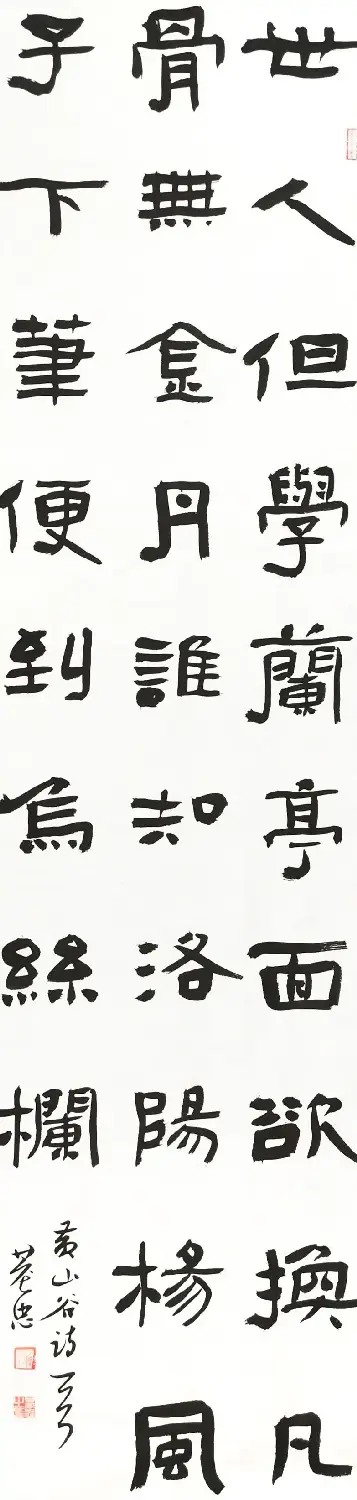 世人但學蘭亭面欲換凡
骨無金丹誰知洛陽楊風
子下筆便到烏絲欄
黃山谷詩一首